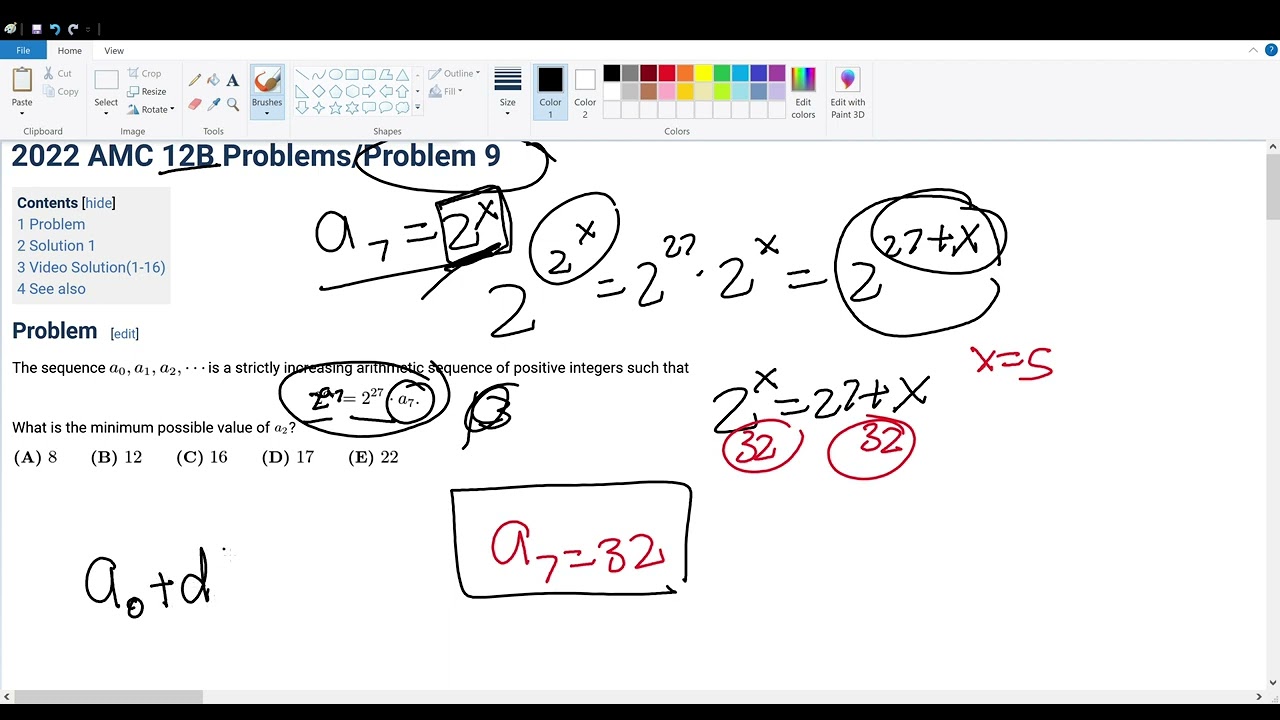 File Home View
Paste Cut Copy Clipboard
Select Crop Resize Rotate Image
Tools
Brushes
Shapes
Outline Fill
Size
Color 1
Color 2
Colors
Edit colors
Edit with Paint 3D
2022 AMC 12B Problems/Problem 9
Contents [hide]
1 Problem
2 Solution 1
3 Video Solution(1-16)
4 See also
a₇ = 2^x
2^(2^x) = 2^27 · 2^x = 2^(27+x)
Problem [edit]
The sequence a₀, a₁, a₂, ⋯ is a strictly increasing arithmetic sequence of positive integers such that
2^a₇ = 2^27 · a₇.
What is the minimum possible value of a₂?
(A) 8 (B) 12 (C) 16 (D) 17 (E) 22
x=5
2^x = 27+x
32 32
a₇ = 32
a₀ + d